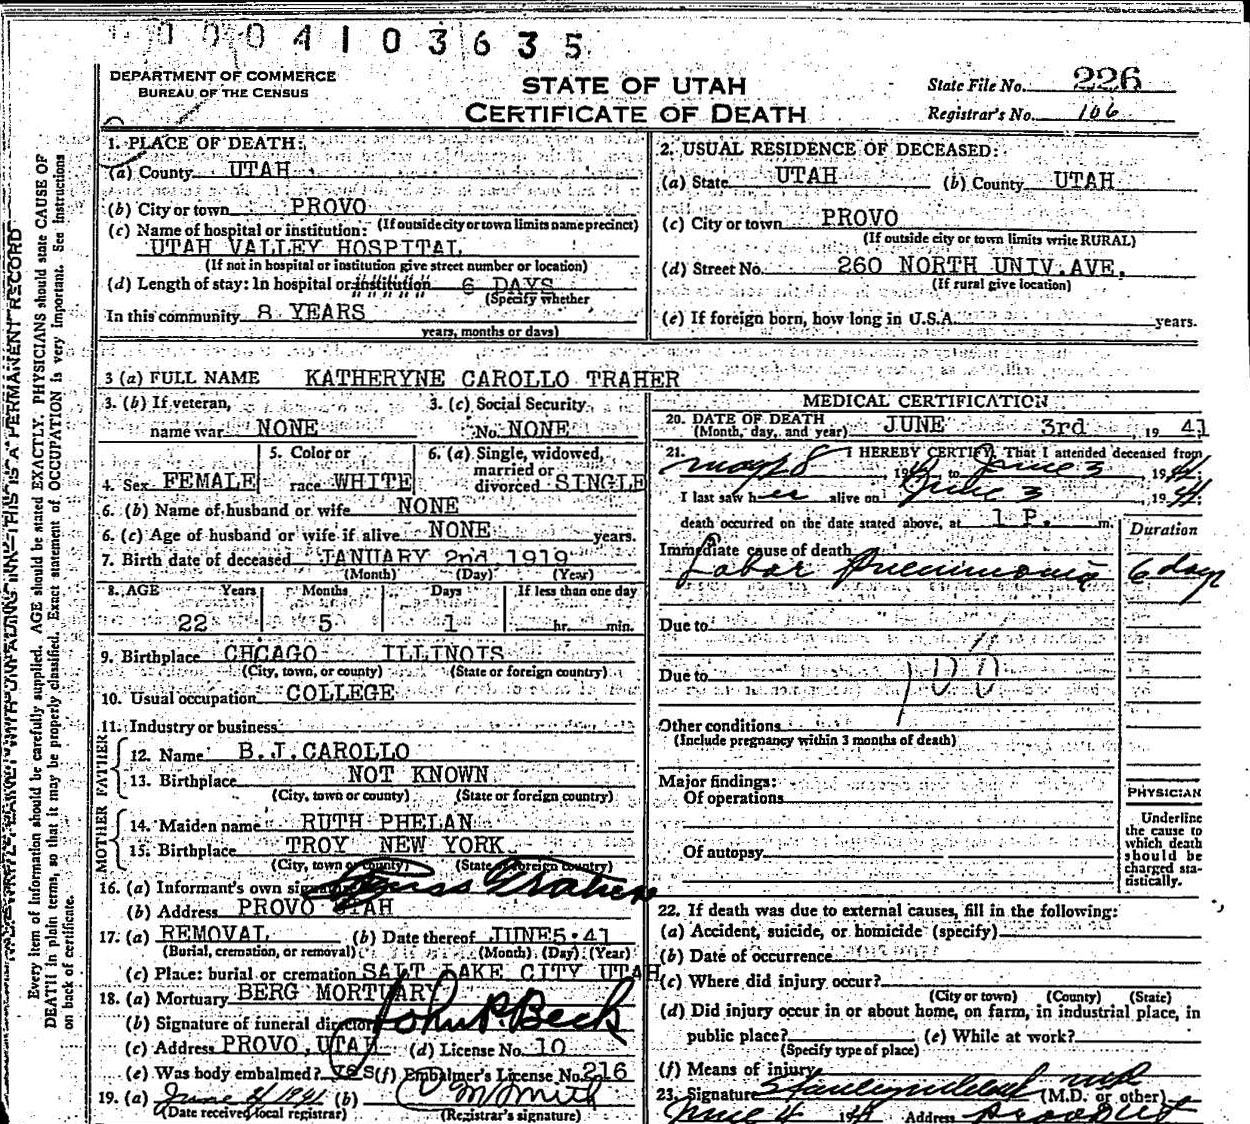 0004103635
DEPARTMENT OF COMMERCE
BUREAU OF THE CENSUS
STATE OF UTAH
CERTIFICATE OF DEATH
State File No. 226
Registrar's No. 106
WRITE PLAINLY, WITH UNFADING INK—THIS IS A PERMANENT RECORD
Every item of information should be carefully supplied. AGE should be stated EXACTLY. PHYSICIANS should state CAUSE OF
DEATH in plain terms, so that it may be properly classified. Exact statement of OCCUPATION is very Important. See Instructions
on back of certificate.
1. PLACE OF DEATH:
(a) County UTAH
(b) City or town PROVO
(If outside city or town limits name precinct)
(c) Name of hospital or institution:
UTAH VALLEY HOSPITAL
(If not in hospital or institution give street number or location)
(d) Length of stay: In hospital or institution 6 DAYS
(Specify whether
In this community 8 YEARS
years, months or days)
2. USUAL RESIDENCE OF DECEASED:
(a) State UTAH (b) County UTAH
(c) City or town PROVO
(If outside city or town limits write RURAL)
(d) Street No. 260 NORTH UNIV.AVE,
(If rural give location)
(e) If foreign born, how long in U.S.A. years.
3 (a) FULL NAME KATHERYNE CAROLLO TRAHER
3. (b) If veteran, name war NONE
3. (c) Social Security No. NONE
4. Sex FEMALE
5. Color or race WHITE
6. (a) Single, widowed, married or divorced SINGLE
6. (b) Name of husband or wife NONE
6. (c) Age of husband or wife if alive NONE years.
7. Birth date of deceased JANUARY 2nd, 1919
(Month) (Day) (Year)
8. AGE Years Months Days If less than one day
22 5 1 hr. min.
9. Birthplace CHCAGO ILLINOIS
(City, town, or county) (State or foreign country)
10. Usual occupation COLLEGE
11. Industry or business
FATHER
12. Name B.J.CAROLLO
13. Birthplace NOT KNOWN
(City, town or county) (State or foreign country)
MOTHER
14. Maiden name RUTH PHELAN
15. Birthplace TROY NEW YORK
(City, town or county) (State or foreign country)
16. (a) Informant's own signature
(b) Address PROVO UTAH
17. (a) REMOVAL (b) Date thereof JUNE5.41
(Burial, cremation, or removal) (Month) (Day) (Year)
(c) Place: burial or cremation SALT LAKE CITY UTAH
18. (a) Mortuary BERG MORTUARY
(b) Signature of funeral director John P. Beck
(c) Address PROVO,UTAH (d) License No. 10
(e) Was body embalmed? YES (f) Embalmer's License No. 216
19. (a) June 4 1941 (b) Smith
(Date received local registrar) (Registrar's signature)
MEDICAL CERTIFICATION
20. DATE OF DEATH
(Month, day, and year) JUNE 3rd, 1941
21. I HEREBY CERTIFY, That I attended deceased from
May 28 1941 to June 3 1941.
I last saw her alive on June 3 1941.
death occurred on the date stated above, at 1 P. m.
Duration
Immediate cause of death
Lobar Pneumonia 6 days
Due to
Due to
Other conditions
(Include pregnancy within 3 months of death)
Major findings:
Of operations
Of autopsy
PHYSICIAN
Underline
the cause to
which death
should be
charged sta-
tistically.
22. If death was due to external causes, fill in the following:
(a) Accident, suicide, or homicide (specify)
(b) Date of occurrence
(c) Where did injury occur?
(City or town) (County) (State)
(d) Did injury occur in or about home, on farm, in industrial place, in
public place? (e) While at work?
(Specify type of place)
(f) Means of injury
23. Signature MD (M.D. or other)
June 4 1941 Address Provo Ut